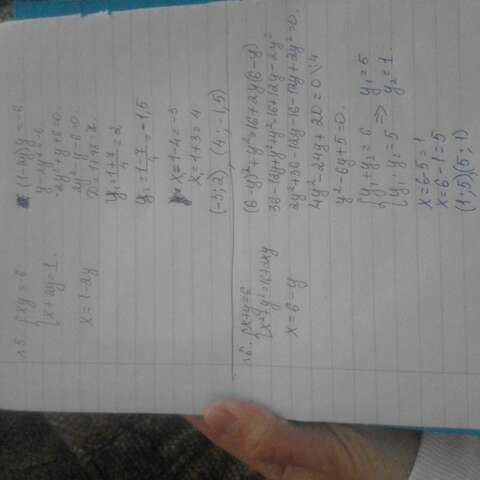 n5. {xy = -6
{x + 2y = 1.
x = 1 - 2y
(1-2y)y = -6
y - 2y² = -6
-2y² + y + 6 = 0.
2y² - y - 6 = 0.
y₁ = 1+7/4 = 2
y₁ = 1-7/4 = -1,5
x = 1-4 = -3
x₁ = 1+3 = 4
(-3; 2), (4; -1,5)
n6. {x+y=6
{x²+y²=16+2xy
x = 6 - y
(6-y)² + y² = 16 + 2y(6-y)
36 - 12y + y² + y² = 16 + 12y - 2y²
2y² + 36 - 12y - 16 - 12y + 2y² = 0.
4y² - 24y + 20 = 0 \:4
y² - 6y + 5 = 0.
{y₁ + y₂ = 6 => y₁ = 5
{y₁ · y₂ = 5 y₂ = 1.
x = 6-5 = 1
x = 6 - 1 = 5
(1; 5)(5; 1)